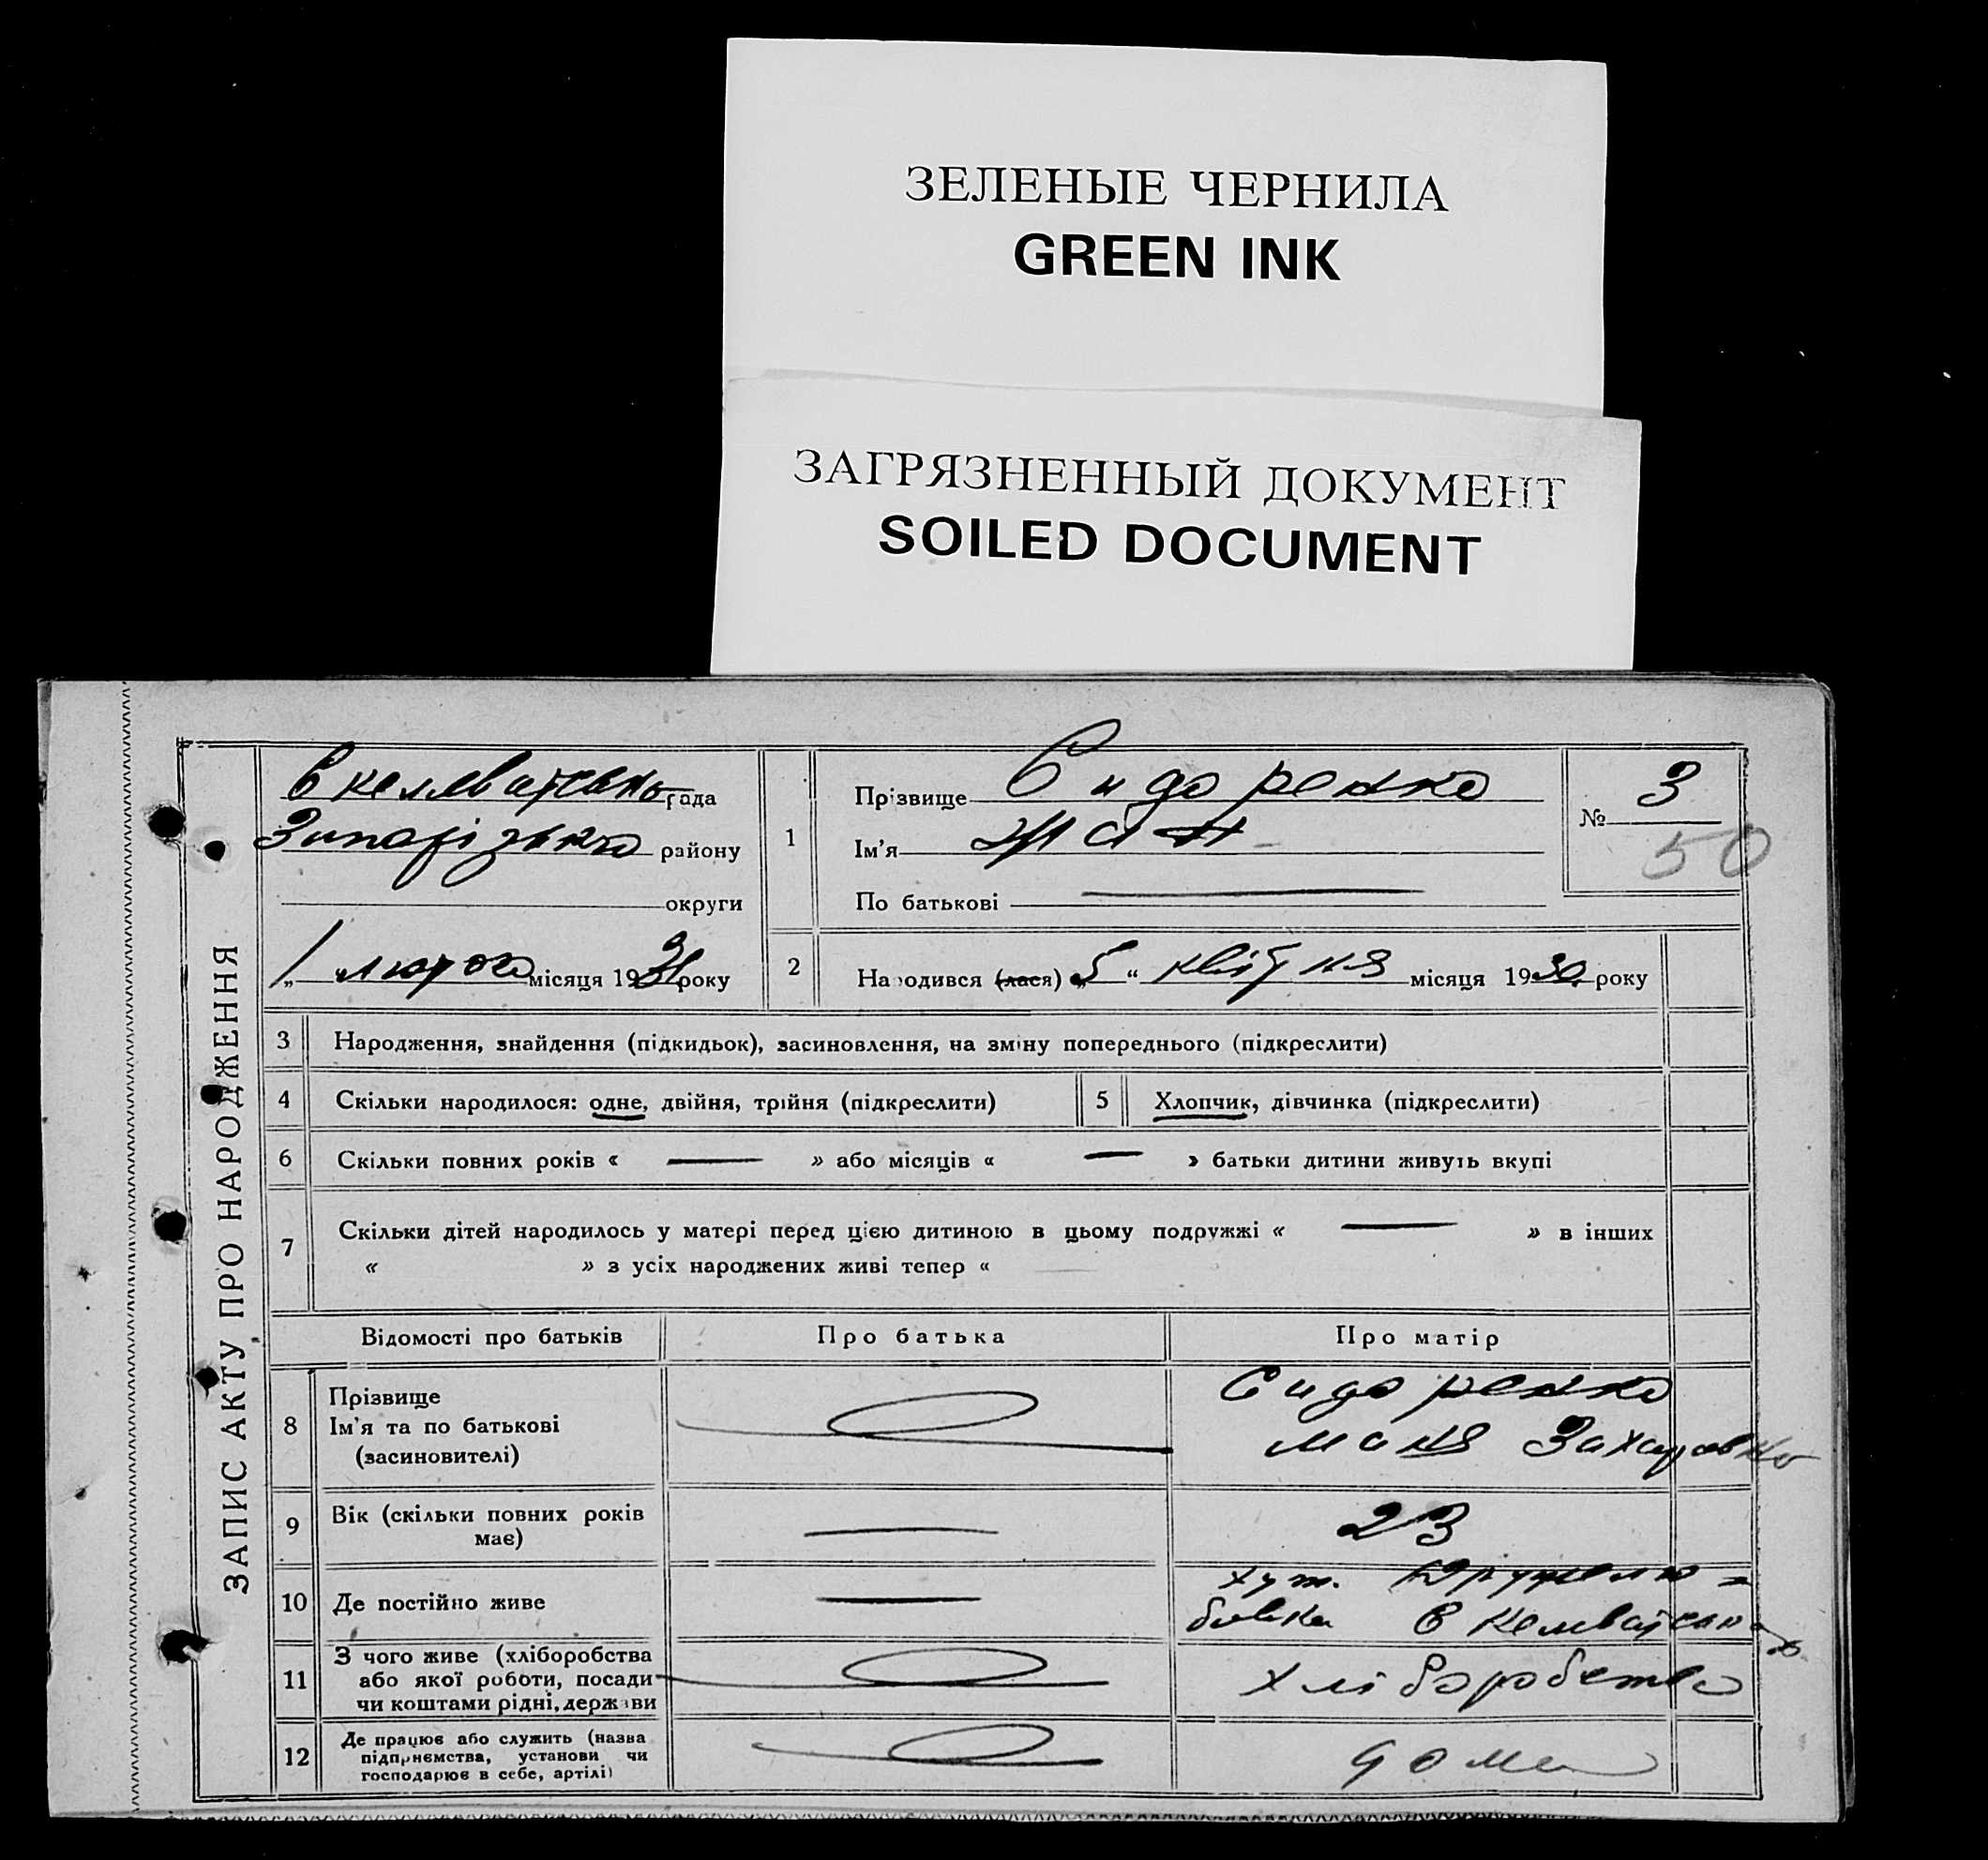 ЗЕЛЕНЫЕ ЧЕРНИЛА
GREEN INK
ЗАГРЯЗНЕННЫЙ ДОКУМЕНТ
SOILED DOCUMENT
ЗАПИС АКТУ ПРО НАРОДЖЕННЯ
рада
району
округи
1 лютого місяця 1931 року
1
Прізвище Сидоренко
Ім'я
По батькові
№ 3
50
2
Народився (лася) „5“ квітня місяця 1930 року
3 Народження, знайдення (підкидьок), засиновлення, на зміну попереднього (підкреслити)
4 Скільки народилося: одне, двійня, трійня (підкреслити)
5 Хлопчик, дівчинка (підкреслити)
6 Скільки повних років « — » або місяців « — » батьки дитини живуть вкупі
7 Скільки дітей народилось у матері перед цією дитиною в цьому подружжі « — » в інших
« » з усіх народжених живі тепер «
Відомості про батьків Про батька Про матір
8 Прізвище
Ім'я та по батькові
(засиновителі)
Сидоренко
Маня
9 Вік (скільки повних років
має)
— 23
10 Де постійно живе
— хут.
11 З чого живе (хліборобства
або якої роботи, посади
чи коштами рідні, держави
хліборобство
12 Де працює або служить (назва
підприємства, установи чи
господарює в себе, артілі)
дома